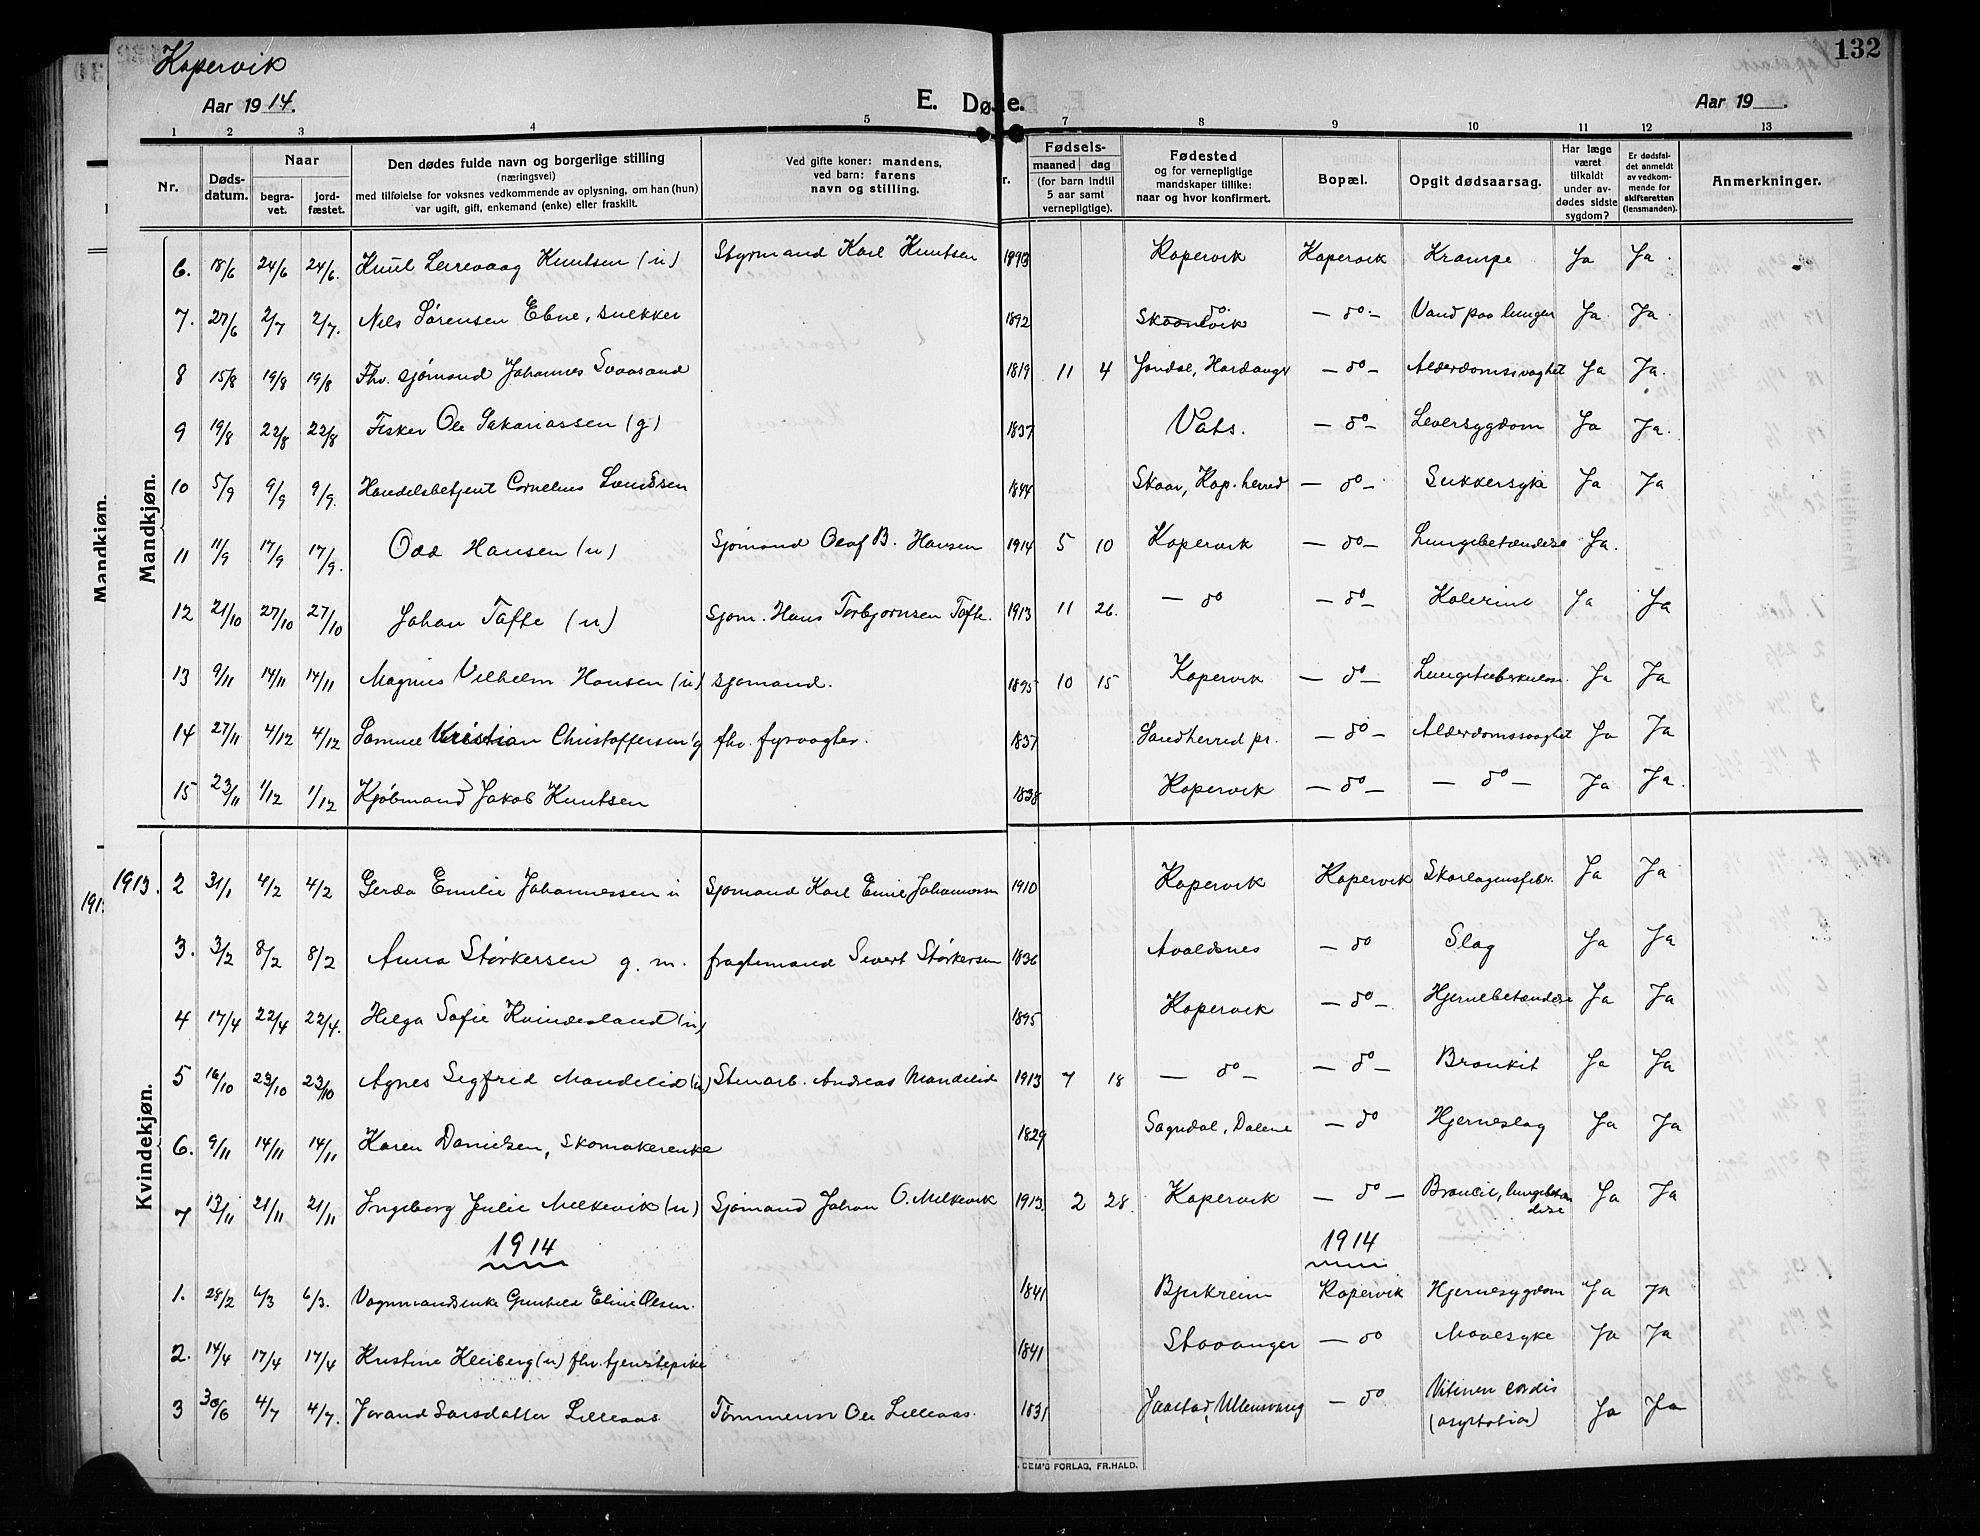 Kopervik
132
Aar 1914.
E. Døde.
Aar 19___.
1 2 3 4 5 7 8 9 10 11 12 13
Nr. Døds-datum. Naar begra-vet. jord-fæstet. Den dødes fulde navn og borgerlige stilling (næringsvei) med tilføielse for voksnes vedkommende av oplysning, om han (hun) var ugift, gift, enkemand (enke) eller fraskilt. Ved gifte koner: mandens, ved barn: farens navn og stilling. Fødsels- maaned dag (for barn indtil 5 aar samt vernepligtige). Fødested og for vernepligtige mandskaper tillike: naar og hvor konfirmert. Bopæl. Opgit dødsaarsag. Har læge været tilkaldt under av-dødes sidste sygdom? Er dødsfal-det anmeldt av vedkom-mende for skifteretten (lensmanden). Anmerkninger.
Mandkjøn.
6. 18/6 24/6 24/6. Knut Leirevaag Knutsen (u) Styrmand Karl Knutsen 1893 Kopervik Kopervik Krampe Ja Ja.
7. 27/6 2/7 2/7. Nils Sørensen Ebne, snekker 1892 Skaanevik do. — do — Vand paa lungen Ja. Ja.
8 15/8 19/8 19/8 Fhv. sjømand Johannes Svaasand 1819 11 4 Jondal, Hardanger — do — Alderdomssvaghet Ja Ja.
9 19/8 22/8 22/8 Fisker Ole Sakariassen (g) 1837 Vats. — do — Leversygdom Ja Ja.
10 5/9 9/9 9/9. Handelsbetjent Cornelius 1844 Skaar, Kop. herred — do — Sukkersyke Ja Ja
11 11/9 17/9 17/9. Odd Hansen (u) Sjømand Olaf B. Hansen 1914 5 10 Kopervik — do — Lungebetændelse Ja.
12 21/10 27/10 27/10 Johan Tofte (u) Sjøm. Hans Torbjørnsen Tofte. 1913 11 26. — do — do — Kolerine Ja Ja
13 9/11 14/11 14/11 Magnus Vilhelm Hansen (u) sjømand. 1895 10 15 Kopervik — do — Lungetuberkulose. Ja Ja
14 27/11 4/12 4/12 Samuel Kristian Christoffersen g fhv. fyrvogter. 1837 Sandherred pr. — do — Alderdomssvaghet Ja Ja
15 23/11 1/12 1/12 Kjøbmand Jakob Knutsen 1838 Kopervik — do — — do — Ja Ja.
Kvindekjøn.
1913. 2 31/1 4/2 4/2 Gerda Emilie Johannessen u Sjømand Karl Emil Johannessen 1910 Kopervik Kopervik Skarlagensfeber. Ja Ja
3. 3/2 8/2 8/2 Anna Størkersen g. m. fragtemand Sivert Størkersen 1836 Avaldsnes — do Slag Ja Ja
4 17/4 22/4 22/4. Helga Sofie Kvindesland (u) 1895 Kopervik — do — Hjernebetændelse Ja Ja
5 16/10 23/10 23/10 Agnes Sigfrid Mandelid (u) Stenarb. Andreas Mandelid 1913 7 18 — do — — do — Bronkit Ja Ja
6. 9/11 14/11 14/11 Karen Danielsen, skomakerenke 1829 Sogndal, Dalene — do Hjerneslag Ja Ja
7 13/11 21/11 21/11 Ingeborg Julie Melkevik (u) Sjømand Johan O. Melkevik 1913. 2 28. Kopervik — do — Broncit, lungebetændelse Ja Ja
1914 1914
1. 28/2 6/3 6/3. Vognmandsenke Gunhild Eline Olsen. 1841 Bjerkreim Kopervik Hjernesygdom Ja Ja
2. 14/4 17/4 17/4 Kristine Kleiberg (u) fhv. tjenstepike 1841 Stavanger — do Mavesyke Ja Ja
3 30/6 4/7 4/7. Jorand Larsdatter Lilleaas. Tømmerm Ole Lilleaas. 1831 Jaastad, Ullensvang — do Vitium cordis (asystolia) Ja Ja
DEM'S FORLAG, FR.HALD.